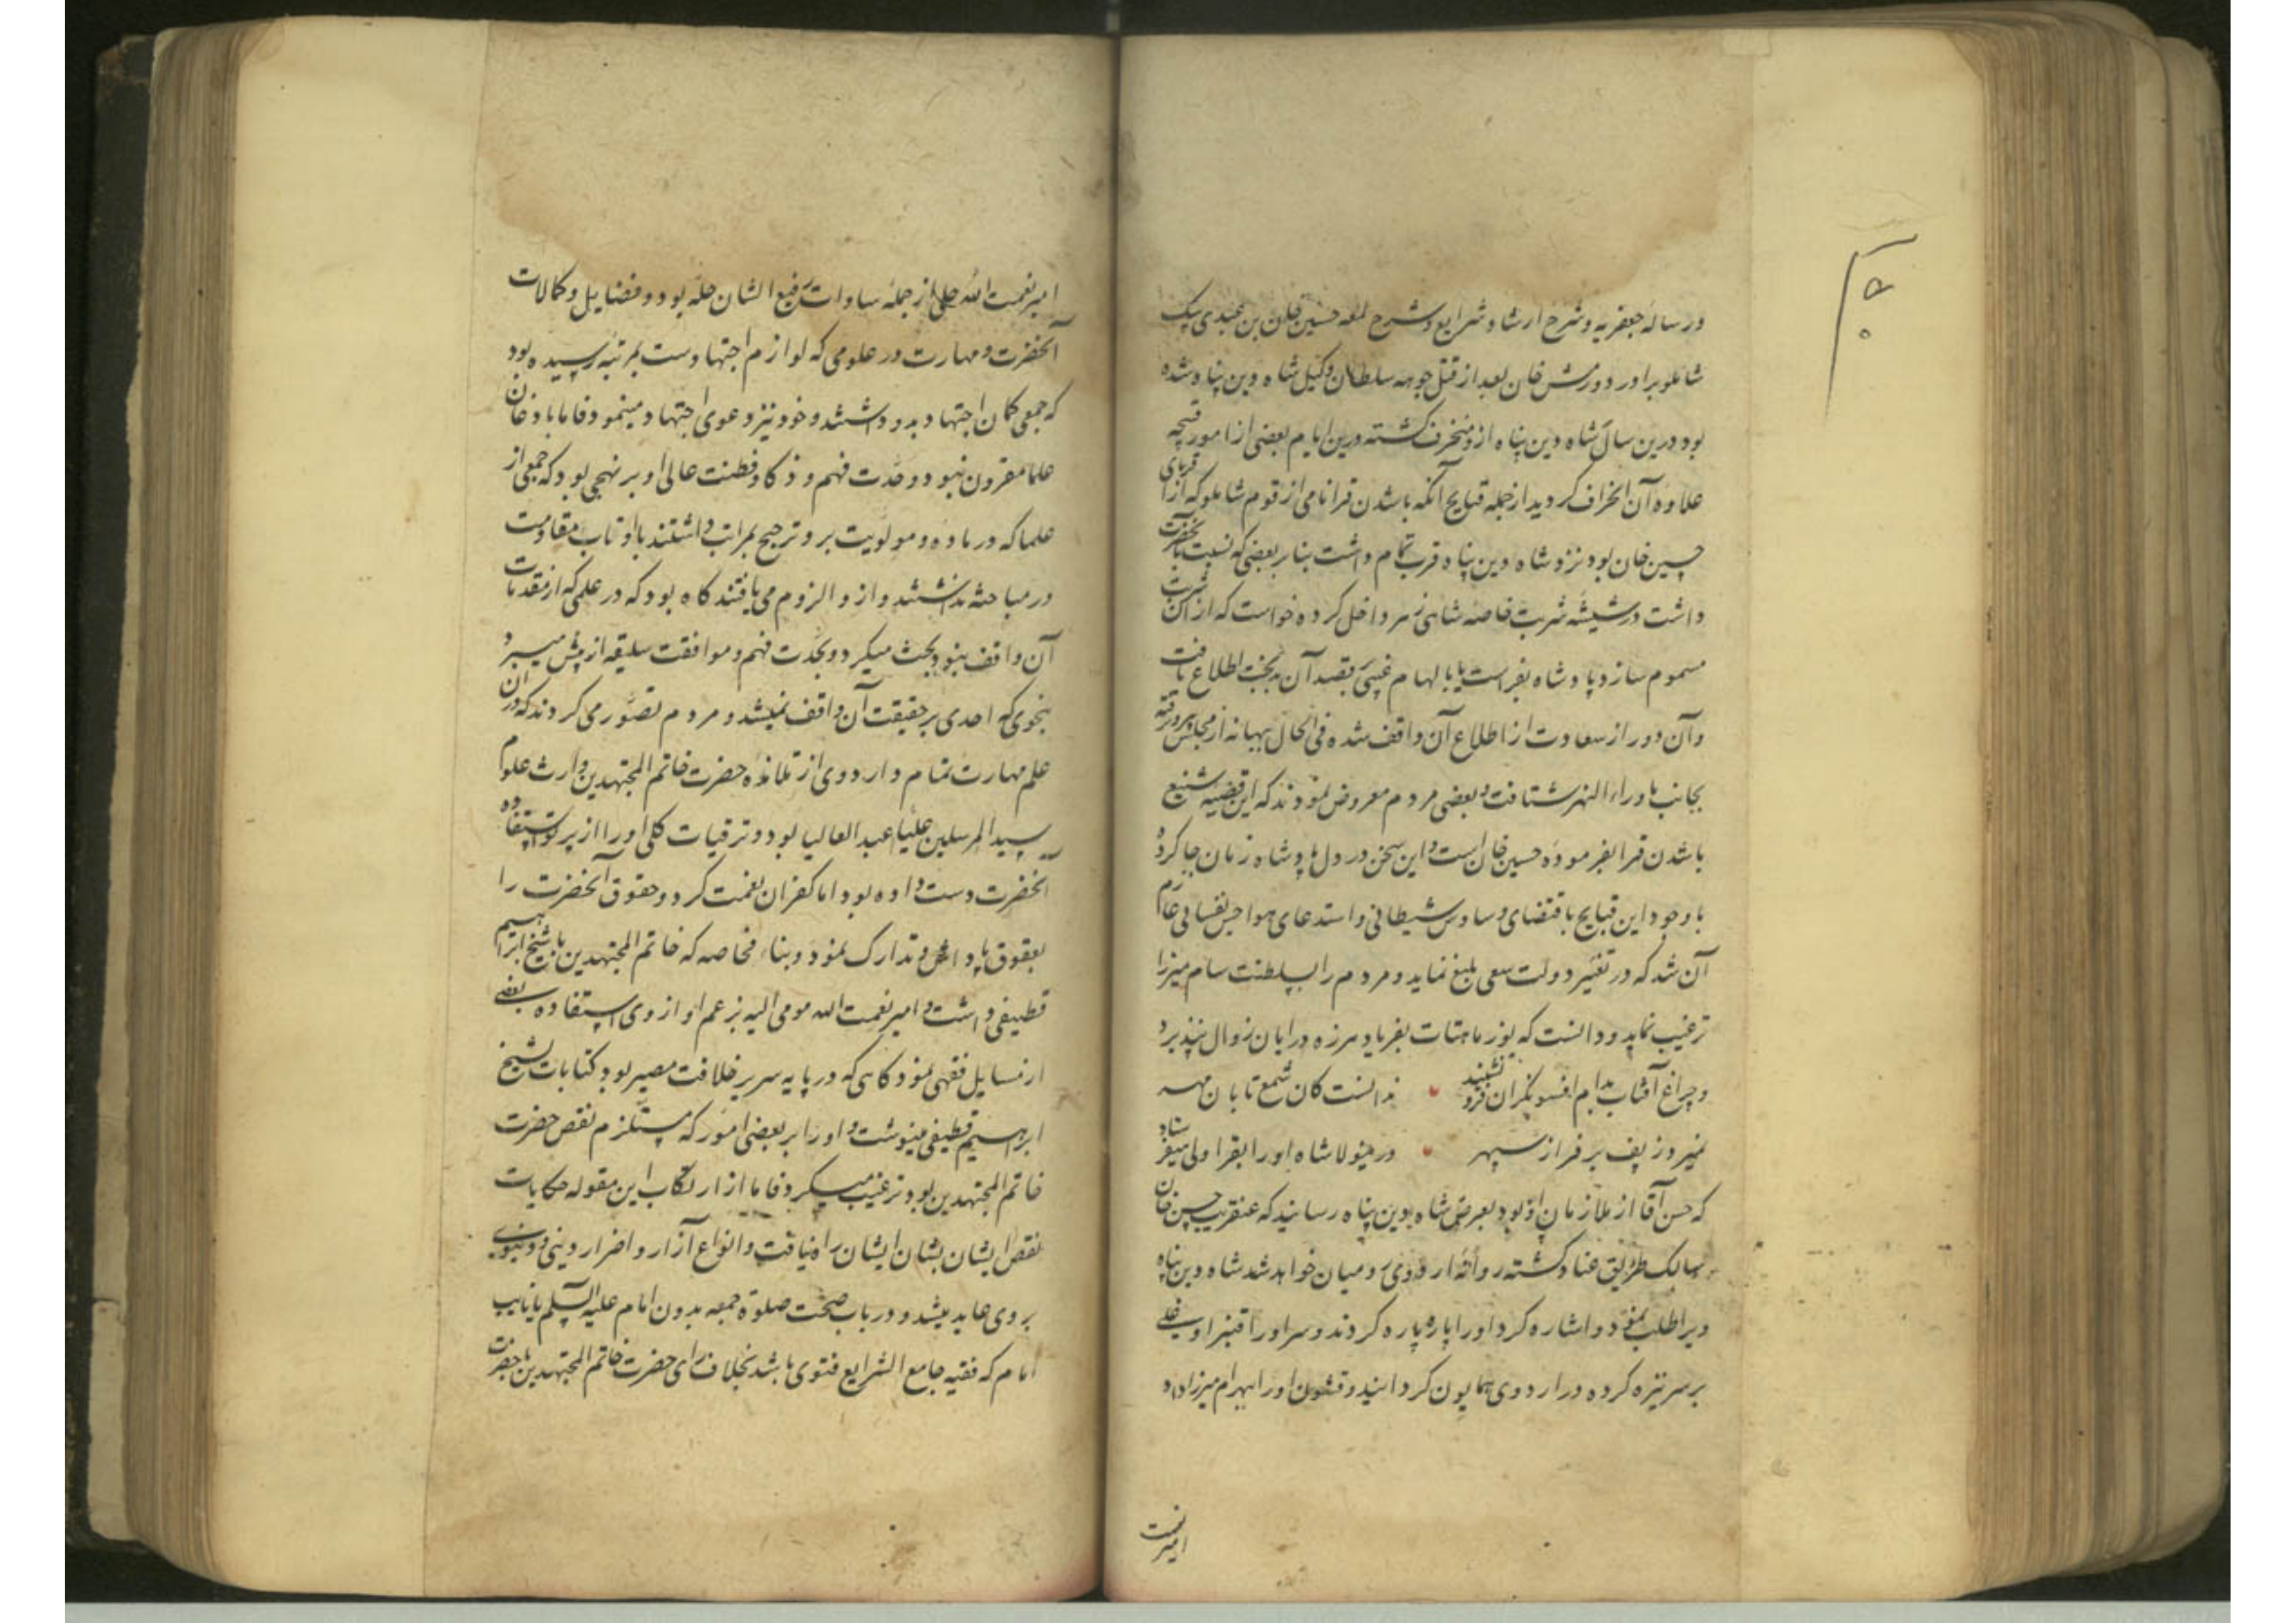 در رساله جعفریه و شرح ارشاد و شرایع و شرح لمعه حسین خان بن عبدی بیک
شاملو برادر دورمش خان بعد از قتل جوهه سلطان وکیل شاه دین پناه شده
بود درین سال شاه دین پناه ازو منحرف گشته درین ایام بعضی از امور قبیحه
علاوه آن انحراف گردید از جمله قبایح آنکه باشدن قرا نامی از قوم شاملو که از اقربای
حسین خان بود نزد شاه دین پناه قرب تمام داشت بنابر بعضی که نسبت بآنحضرت
داشت در شیشه شربت خاصه شاهی زهر داخل کرده خواست که از آن شربت
مسموم سازد پادشاه بفراست یا بالهام غیبی بقصد آن بدبخت اطلاع یافت
و آن دور از سعادت از اطلاع آن واقف شده فی الحال ببهانه از مجلس بدر رفته
بجانب ماوراء النهر شتافت و بعضی مردم معروض نمودند که این قضیه شنیع
باشدن قرا بفرموده حسین خان است و این سخن در دل پادشاه زمان جا کرد
با وجود این قبایح باقتضای وساوس شیطانی و استدعای هواجس نفسانی عازم
آن شد که در تغییر دولت سعی بلیغ نماید و مردم را بسلطنت سام میرزا
ترغیب نماید و دانست که نور ماهتاب بفریاد هرزه درایان زوال نپذیرد
و چراغ آفتاب بدم افسونگران فرو ننشیند ندانست کان شمع تابان مهر
نمیرد ز پف بر فراز سپهر در مینولا شاه او را بقرا ولی میفرستاد
که حسن آقا از ملازمان او بود بعرض شاه دین پناه رسانید که عنقریب حسین خان
سالک طریق عناد گشته روانه اردوی رومیان خواهد شد شاه دین پناه
ویرا طلب نمود و اشاره کرد او را پاره پاره کردند و سر او را قنبر اوغلی
بر سر نیزه کرده در اردوی همایون گردانید و قشون او را بهرام میرزا داد
امیر نعمت
امیر نعمت الله حلی از جمله سادات رفیع الشان حله بود و فضایل و کمالات
آنحضرت و مهارت در علومی که لوازم اجتهادست بمرتبه رسیده بود
که جمعی گمان اجتهاد بدو داشتند و خود نیز دعوی اجتهاد مینمود فاما باذعان
علما مقرون نبود و حدت فهم و ذکا و فطنت عالی او بر نهجی بود که جمعی از
علما که در ماده و مولویت برو ترجیح بمراتب داشتند با او تاب مقاومت
در مباحثه نداشتند و ازو الزوم می یافتند گاه بود که در علمی که از مقدمات
آن واقف نبود بحث میکرد و بحدت فهم و موافقت سلیقه از پیش میبرد
بنحوی که احدی بر حقیقت آن واقف نمیشد و مردم تصور می کردند که در آن
علم مهارت تمام دارد وی از تلامذه حضرت خاتم المجتهدین وارث علوم
سید المرسلین علیا عبد العالیا بود و ترقیات کلی او را از پرتو استفاده
آنحضرت دست داده بود اما کفران نعمت کرد و حقوق آنحضرت را
بعقوق پاداش و تدارک نمود و بناء مخاصه که خاتم المجتهدین با شیخ ابراهیم
قطیفی داشت و امیر نعمت الله مومی الیه بزعم او از وی استفاده بعضی
از مسایل فقهی نمود گاهی که در پایه سریر خلافت مصیر بود کتابات بشیخ
ابراهیم قطیفی مینوشت و او را بر بعضی امور که مستلزم نقص حضرت
خاتم المجتهدین بود ترغیب میکرد فاما از ارتکاب این مقوله حکایات
نقص ایشان بشان ایشان راه نیافت و انواع آزار و اضرار دینی و دنیوی
بروی عاید میشد و در باب صحت صلوة جمعه بدون امام علیه السلم یا نایب
امام که فقیه جامع الشرایع فتوی باشد بخلاف رای حضرت خاتم المجتهدین با حضرت